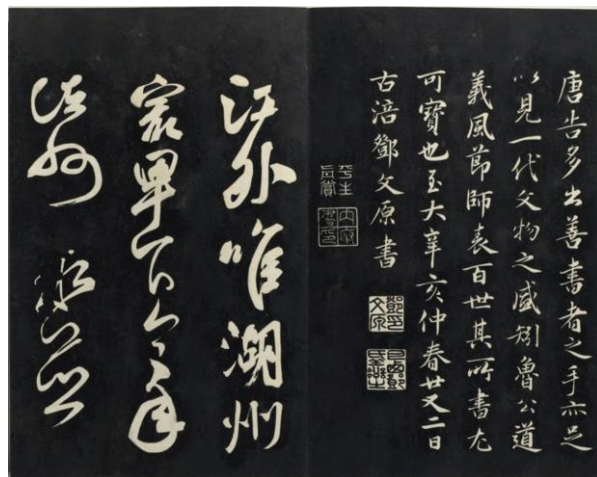 唐告多出善書者之手亦足
以見一代文物之盛矧魯公道
義風節師表百世其所書尤
可寶也至大辛亥仲春廿又二日
古涪鄧文原書
平生
真賞
江外唯湖州
冣卑下今年
諸州水並